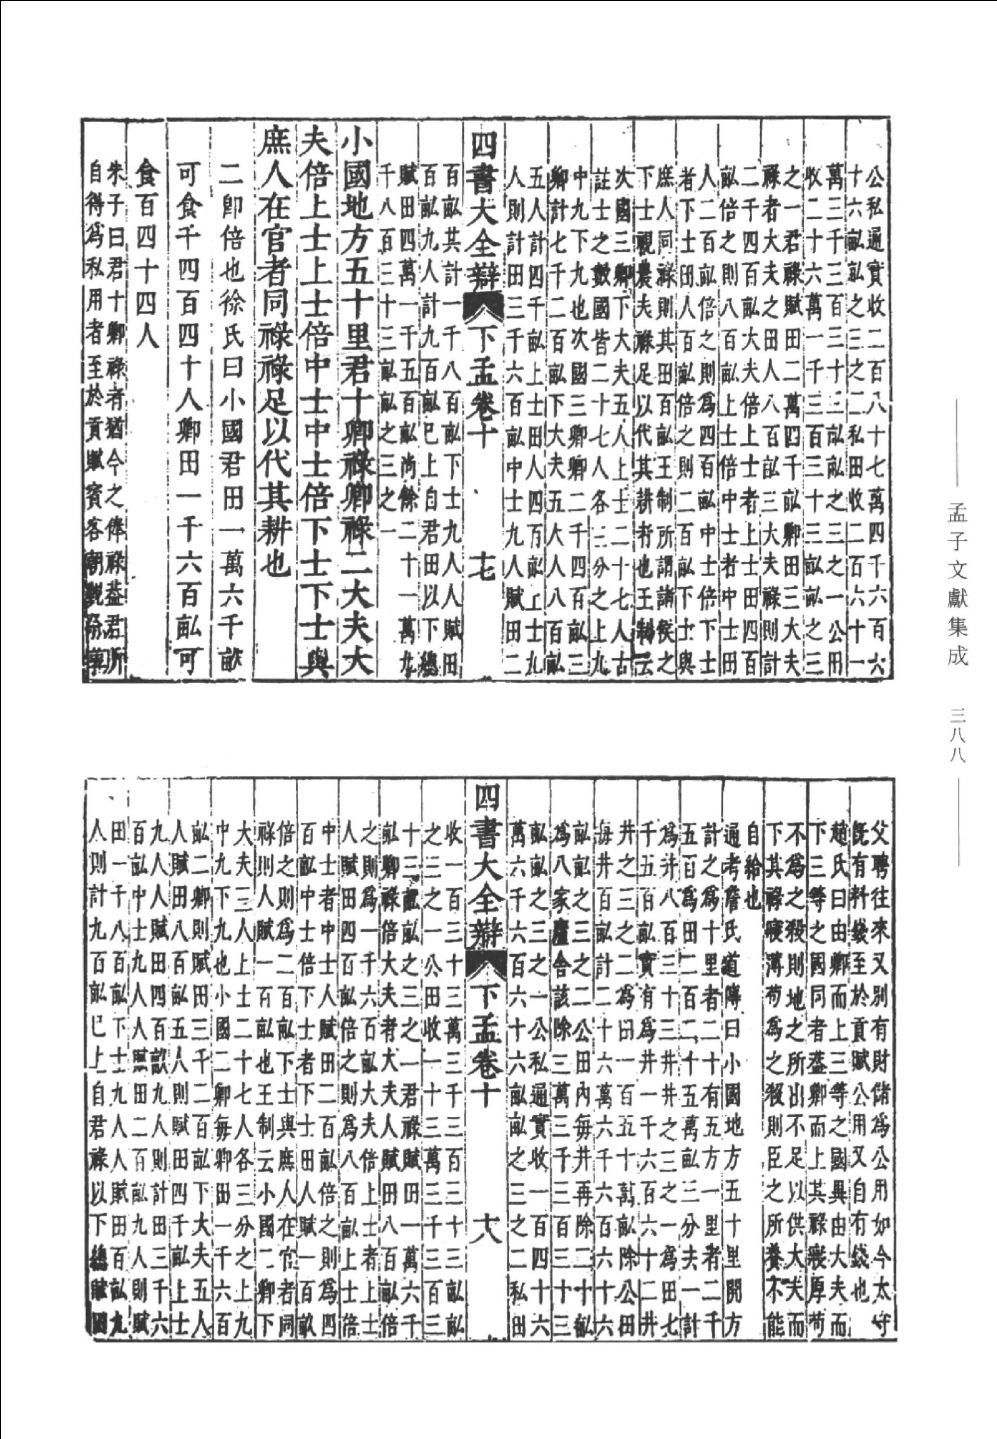 公私通實收二百八十七萬四千六百六
十六畝畝之三之二私田收二百六十一
萬三千三百三十三畝畝之三之一公田
收二十六萬一千三百三十三畝畝之三
之一君祿賦田二萬四千畝卿田三大夫
祿者大夫之田人八百畝三大夫祿則計
二千四百畝大夫倍上士者上士田四百
畝倍之則八百畝上士倍中士者中士田
人二百畝倍之則為四百畝中士倍下士
者下士田人百畝倍之則二百畝下士與
庶人同祿則其田百畝王制所謂諸侯之
下士視農夫祿足以代其耕者也王制云
次國三卿下大夫五人上士二十七人古
註士之數國皆二十七人各三分之上九
中九下九也次國三卿卿二千四百畝三
卿計七千二百畝下大夫五人人八百畝
五人計四千畝上士田人四百畝上士九
人則計田三千六百畝中士九人人賦田二
四書大全辯 下孟卷十 十七
百畝共計一千八百畝下士九人人賦田
百畝九人計九百畝已上自君田以下總
賦田四萬一千五百畝尚餘二十一萬九
千八百三十三畝畝之三之一
小國地方五十里君十卿祿卿祿二大夫大
夫倍上士上士倍中士中士倍下士下士與
庶人在官者同祿祿足以代其耕也
二卽倍也徐氏曰小國君田一萬六千畝
可食千四百四十人卿田一千六百畝可
食百四十四人
朱子曰君十卿祿者猶今之俸祿蓋君所
自得為私用者至於貢賦賓客朝覲祭饗
孟子文獻集成 三八八
交聘往來又別有財儲為公用如今太守
旣有料錢至於貢賦公用又自有錢也
趙氏曰由卿而上三等之國異由大夫而
下三等之國同者蓋卿而上其祿寖厚苟
不為之殺則地之所出不足以供大夫而
下其祿寖薄苟為之殺則臣之所養不能
自給也
通考詹氏道傳曰小國地方五十里開方
計之為十里者二十有五方一里者二千
五百為田二百二十五萬畝三分去一計
為井八百三十三井井之三之一為田七
千五百畝實有為井一千六百六十二井
井之三之二為田一百五十萬畝除公田
每井百畝計一十六萬六千六百六十六
畝畝之三之二公田內每井再除二十畝
為八家廬舍該除三萬三千三百三十三
畝畝之三之一公私通實收一百四十六
萬六千六百六十六畝畝之三之二私田
四書大全辯 下孟卷十 十八
收一百三十三萬三千三百三十三畝畝
之三之一公田收一十三萬三千三百三
十三畝畝之三之一君祿賦田一萬六千
畝卿祿倍大夫者大夫人賦田八百畝倍
之則為一千六百畝大夫倍上士者上士
人賦田四百畝倍之則為八百畝上士倍
中士者中士人賦田二百畝倍之則為四
百畝中士倍下士者下士田人賦一百畝
倍之則為二百畝下士與庶人在官者同
祿則人賦一百畝也王制云小國二卿下
大夫三人上士二十七人各三分之上九
中九下九也小國二卿每卿田一千六百
畝二卿則賦田三千二百畝下大夫五人
人賦田八百畝五人則賦田四千畝上士
九人人賦田四百畝九人則計田三千六
百畝中士九人人賦田二百畝九人則賦
田一千八百畝下士九人人賦田百畝九
人則計九百畝已上自君祿以下總賦田